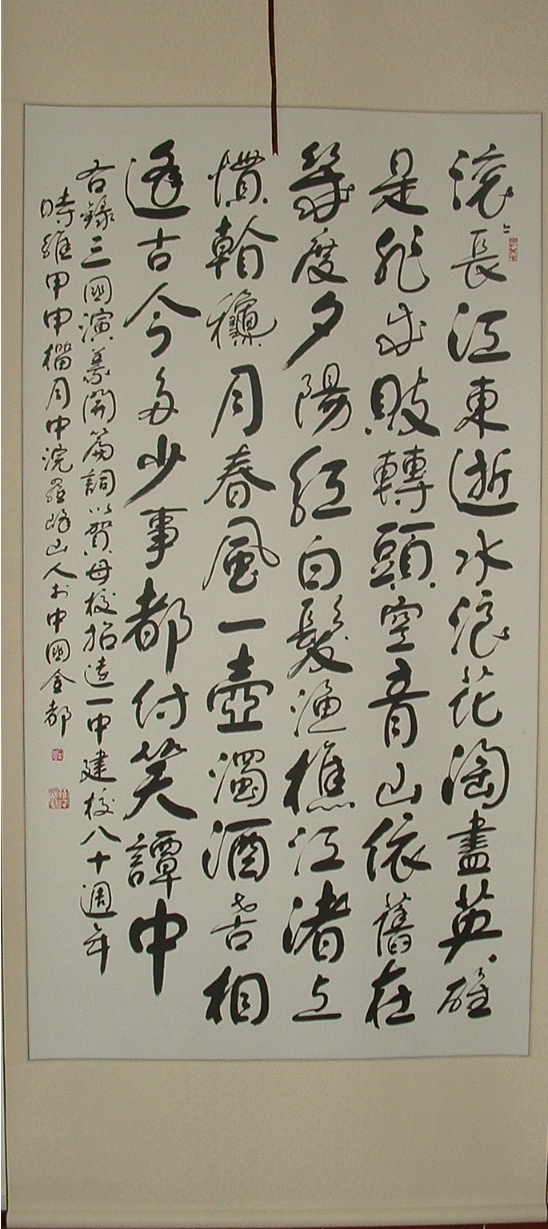 滾〻長江東逝水浪花淘盡英雄
是非成敗轉頭空青山依舊在
幾度夕陽紅白髮漁樵江渚上
慣看龝月春風一壺濁酒喜相
逢古今多少事都付笑譚中
右錄三國演義開篇詞以賀母校招遠一中建校八十週年
時維甲申榴月中浣羅峰山人於中國金都